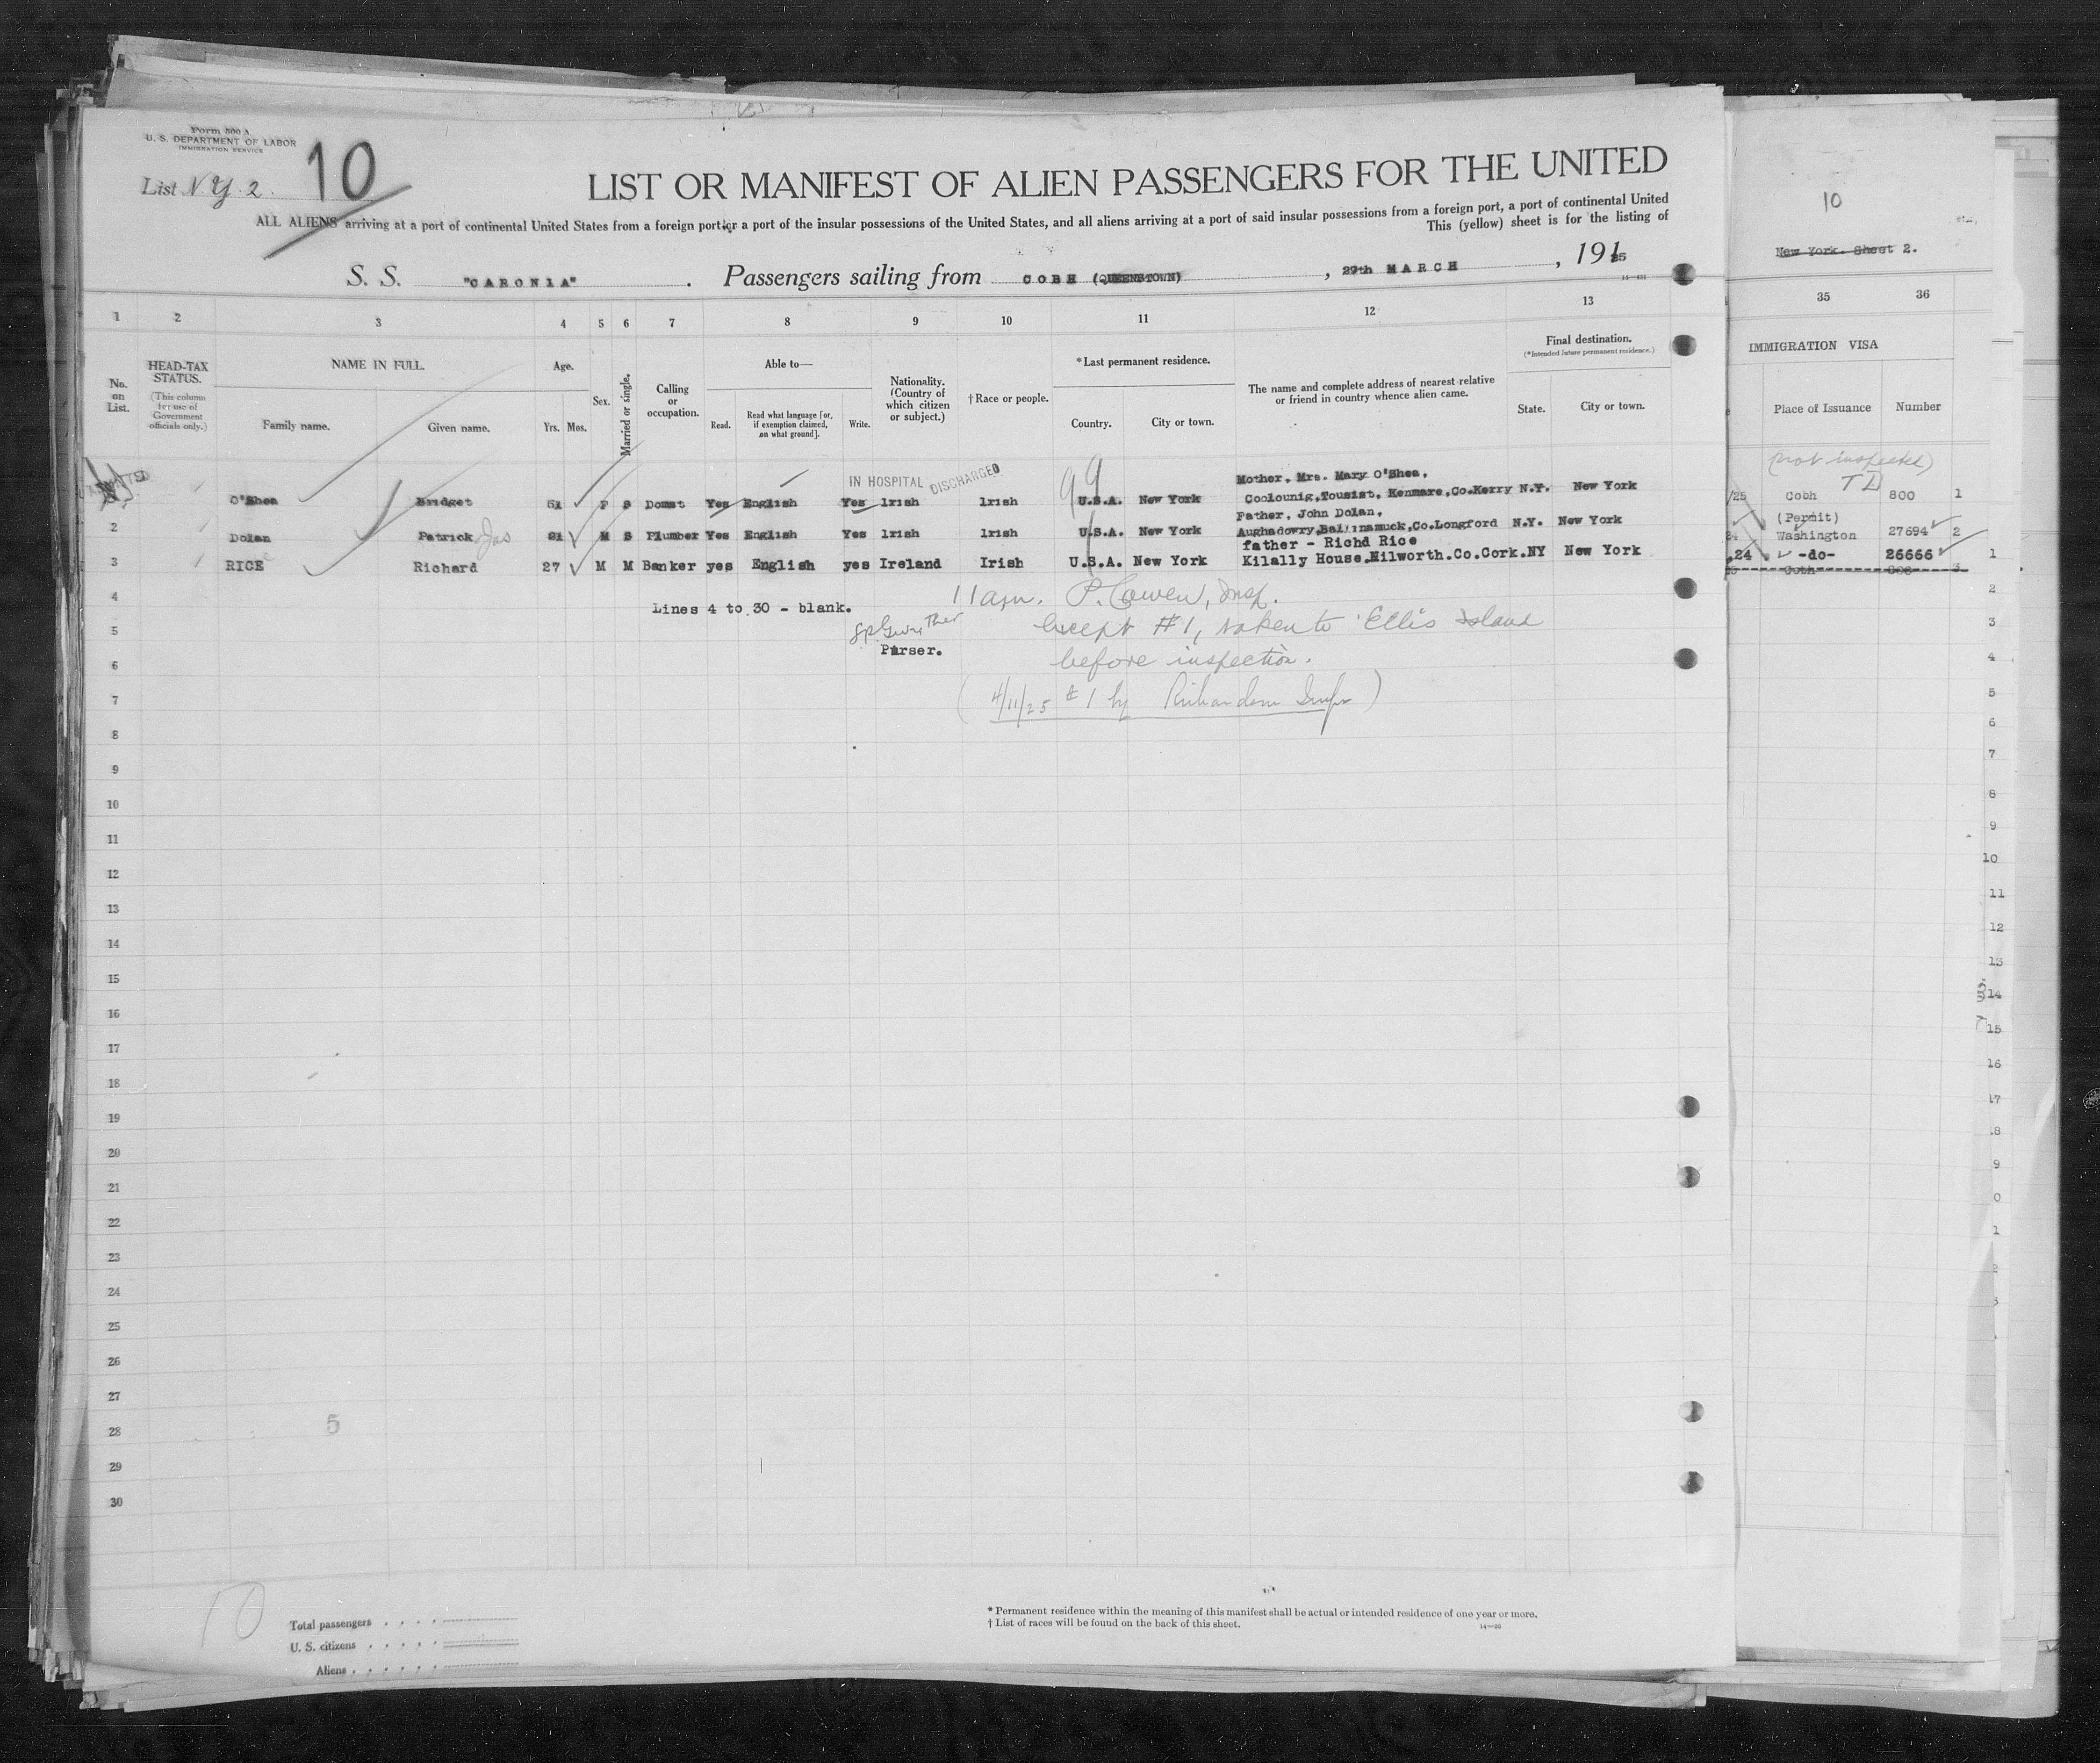 Form 500 A
U. S. DEPARTMENT OF LABOR
IMMIGRATION SERVICE
List N Y. 2. 10
LIST OR MANIFEST OF ALIEN PASSENGERS FOR THE UNITED
ALL ALIENS arriving at a port of continental United States from a foreign port or a port of the insular possessions of the United States, and all aliens arriving at a port of said insular possessions from a foreign port, a port of continental United
This (yellow) sheet is for the listing of
S. S. "CARONIA". Passengers sailing from COBH (QUEENSTOWN), 29th MARCH, 1925
10
New York. Sheet 2.
1 2 3 4 5 6 7 8 9 10 11 12 13 35 36
No. on List.
HEAD-TAX STATUS.
(This column for use of Government officials only.)
NAME IN FULL.
Family name. Given name.
Age.
Yrs. Mos.
Sex.
Married or single.
Calling or occupation.
Able to—
Read. Read what language [or, if exemption claimed, on what ground]. Write.
Nationality. (Country of which citizen or subject.)
† Race or people.
*Last permanent residence.
Country. City or town.
The name and complete address of nearest relative or friend in country whence alien came.
Final destination.
(*Intended future permanent residence.)
State. City or town.
IMMIGRATION VISA
Place of Issuance Number
ADMITTED
IN HOSPITAL DISCHARGED
99
(not inspected)
T D
Mother, Mrs. Mary O'Shea,
O'Shea Bridget 51 F S Domst Yes English Yes Irish Irish U.S.A. New York Coolounig, Tousist, Kenmare, Co.Kerry N.Y. New York /25 Cobh 800 1
Father, John Dolan, (Permit)
2 Dolan Patrick Jas 21 M S Plumber Yes English Yes Irish Irish U.S.A. New York Aughadowry, Ballinamuck, Co.Longford N.Y. New York Washington 27694 2
father - Richd Rice
3 RICE Richard 27 M M Banker yes English yes Ireland Irish U.S.A. New York Kilally House. Kilworth. Co. Cork. NY New York .24 -do- 26666 1
Cobh 3
4 Lines 4 to 30 - blank. 11 am. P. Cowen, Insp. 2
5 except #1, taken to Ellis Island 3
Purser.
6 before inspection. 4
7 (4/11/25 #1 by Richardson Inspr) 5
8 6
9 7
10 8
11 9
12 10
13 11
14 12
15 13
16 14
17 15
18 16
19 17
20 18
21 9
22 0
23 1
24 2
25 3
26
27
28 5
29
30
10
Total passengers
U. S. citizens
Aliens
* Permanent residence within the meaning of this manifest shall be actual or intended residence of one year or more.
† List of races will be found on the back of this sheet.